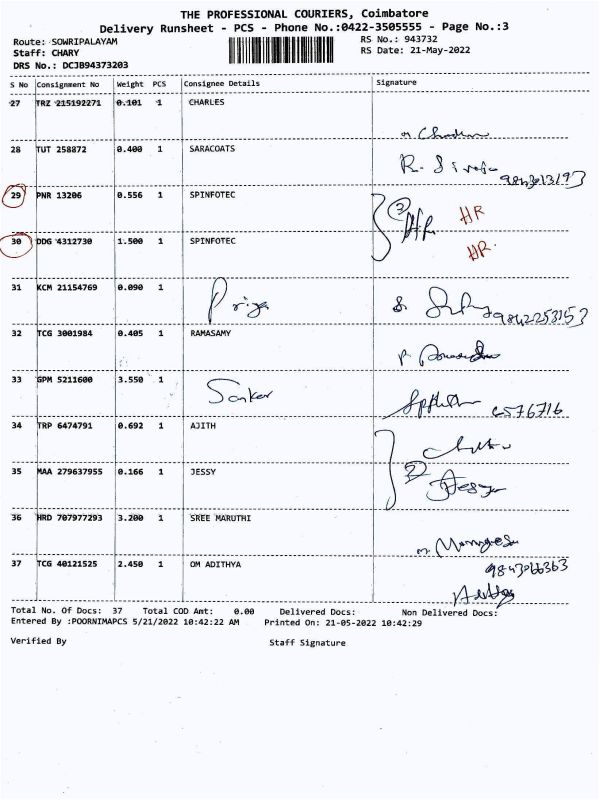 THE PROFESSIONAL COURIERS, Coimbatore
Delivery Runsheet - PCS - Phone No.:0422-3505555 - Page No.:3
Route: SOWRIPALAYAM RS No.: 943732
Staff: CHARY RS Date: 21-May-2022
DRS No.: DCJB94373203
S No Consignment No Weight PCS Consignee Details Signature
27 TRZ 215192271 0.101 1 CHARLES
28 TUT 258872 0.400 1 SARACOATS
29 PNR 13206 0.556 1 SPINFOTEC HR
30 DDG 4312730 1.500 1 SPINFOTEC HR
31 KCM 21154769 0.090 1 Priya 9842253153
32 TCG 3001984 0.405 1 RAMASAMY
33 GPM 5211600 3.550 1 Sankar 6576716
34 TRP 6474791 0.692 1 AJITH
35 MAA 279637955 0.166 1 JESSY
36 HRD 707977293 3.200 1 SREE MARUTHI
37 TCG 40121525 2.450 1 OM ADITHYA
Total No. Of Docs: 37 Total COD Amt: 0.00 Delivered Docs: Non Delivered Docs:
Entered By :POORNIMAPCS 5/21/2022 10:42:22 AM Printed On: 21-05-2022 10:42:29
Verified By Staff Signature